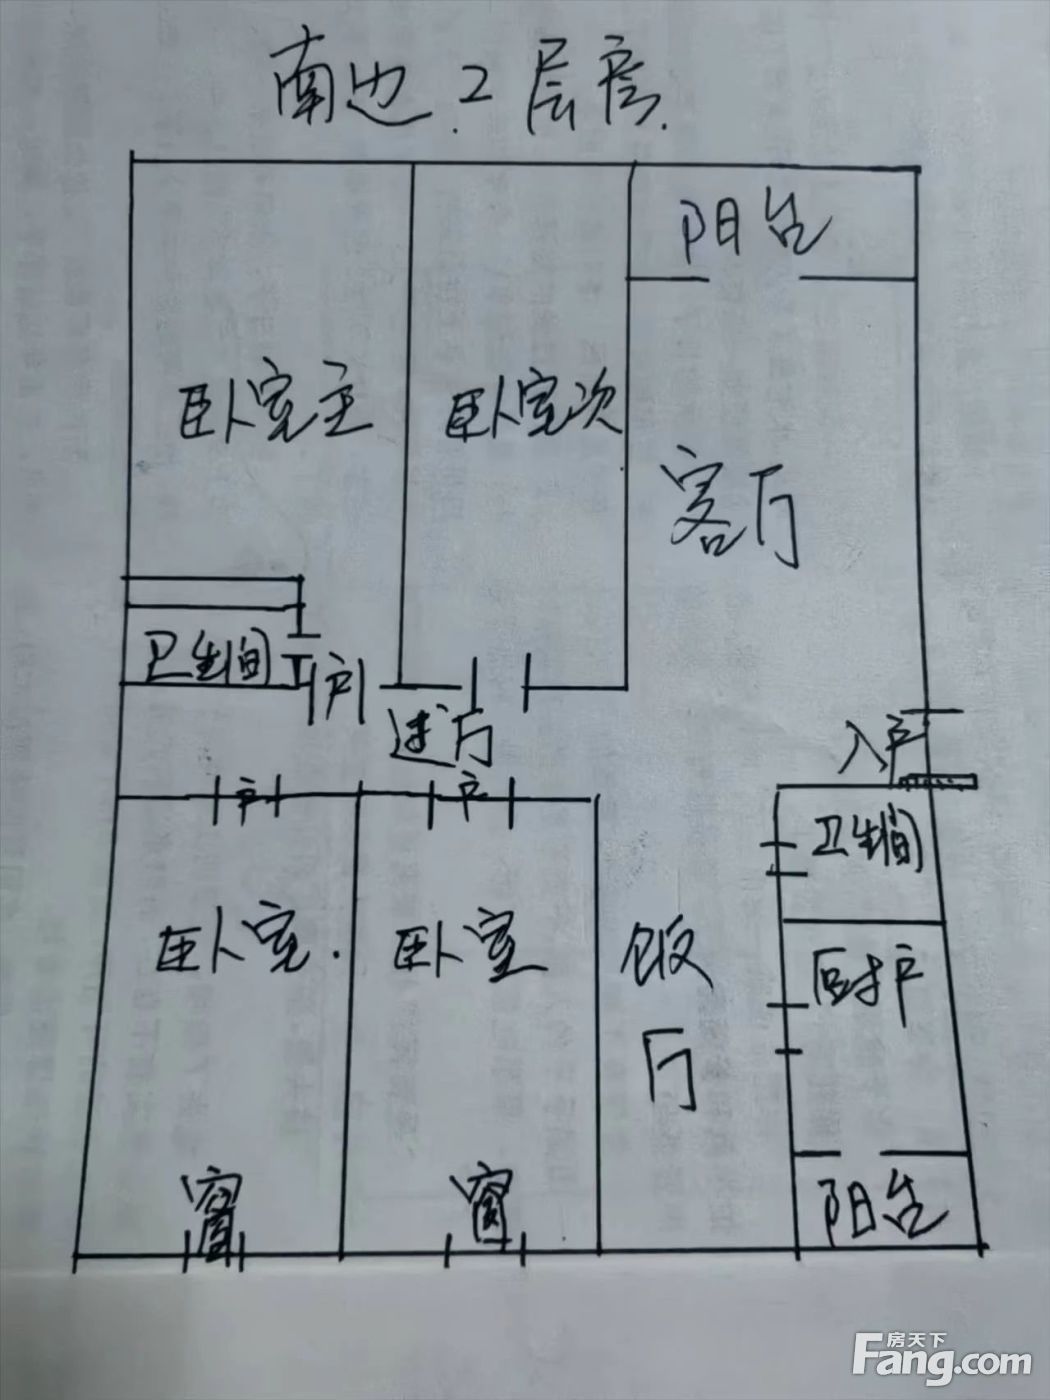 南边.2层房.
阳台
卧室主
卧室次
客厅
卫生间
户
过厅
入户
户
户
卫生间
卧室.
卧室
饭厅
厨户
窗
窗
阳台
房天下
Fang.com